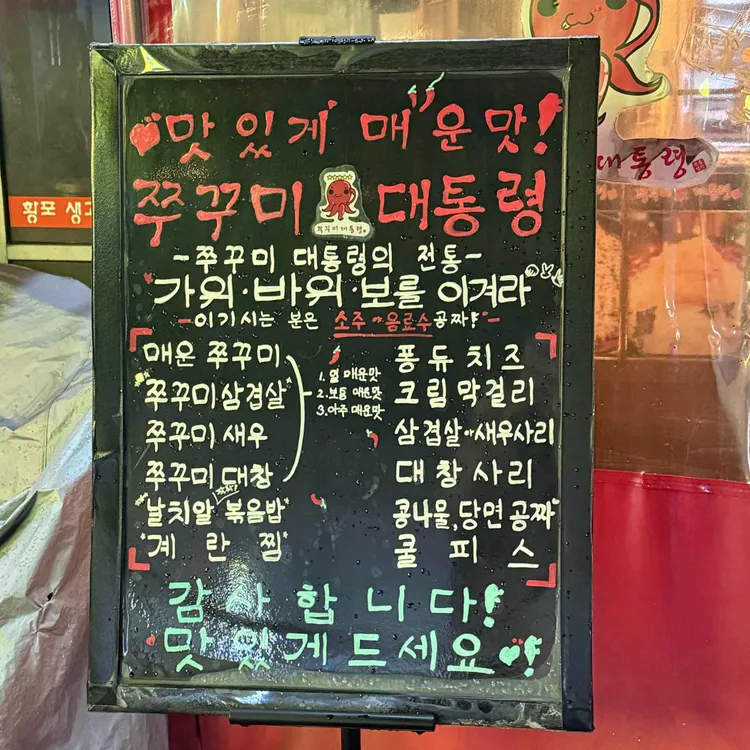 맛있게 매운맛!
쭈꾸미 대통령
쭈꾸미대통령
대통령
황포 생고
-쭈꾸미 대통령의 전통-
가위·바위·보를 이겨라
-이기시는 분은 소주·음료수공짜!-
매운 쭈꾸미
쭈꾸미삼겹살
쭈꾸미 새우
쭈꾸미 대창
날치알 볶음밥
계란찜
1. 덜 매운맛
2. 보통 매운맛
3. 아주 매운맛
퐁듀치즈
크림막걸리
삼겹살·새우사리
대창사리
콩나물,당면공짜
쿨피스
감사합니다!
맛있게드세요!